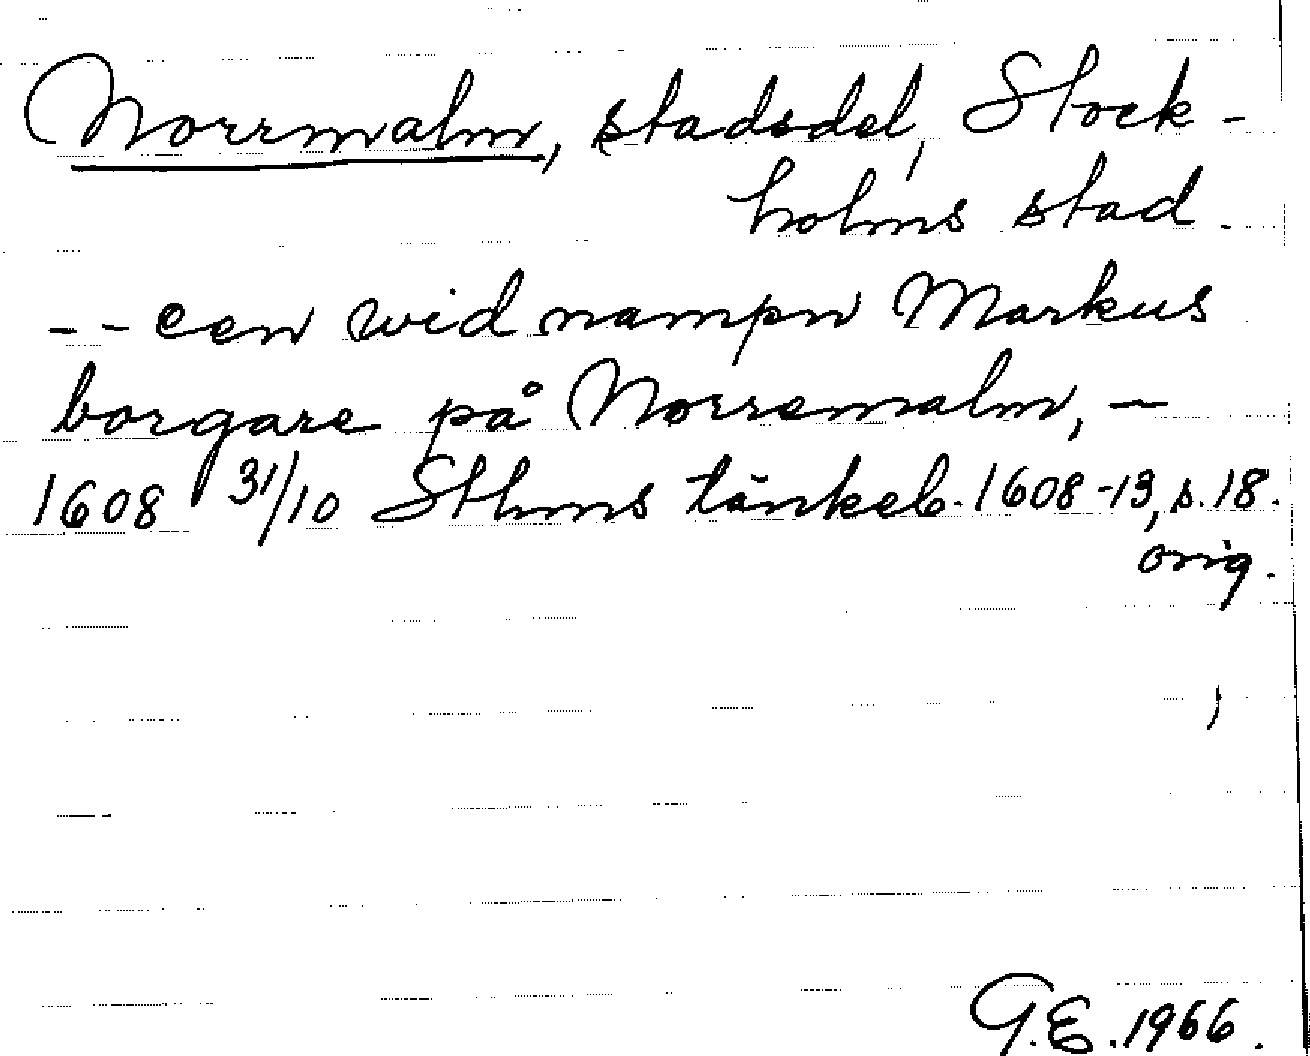 Norrmalm, stadsdel, Stock-
holms stad.
-- een wid nampn Markus
borgare på Norremalm, -
1608 31/10 Sthms tänkeb. 1608-13, s. 18.
orig.
G.E. 1966.